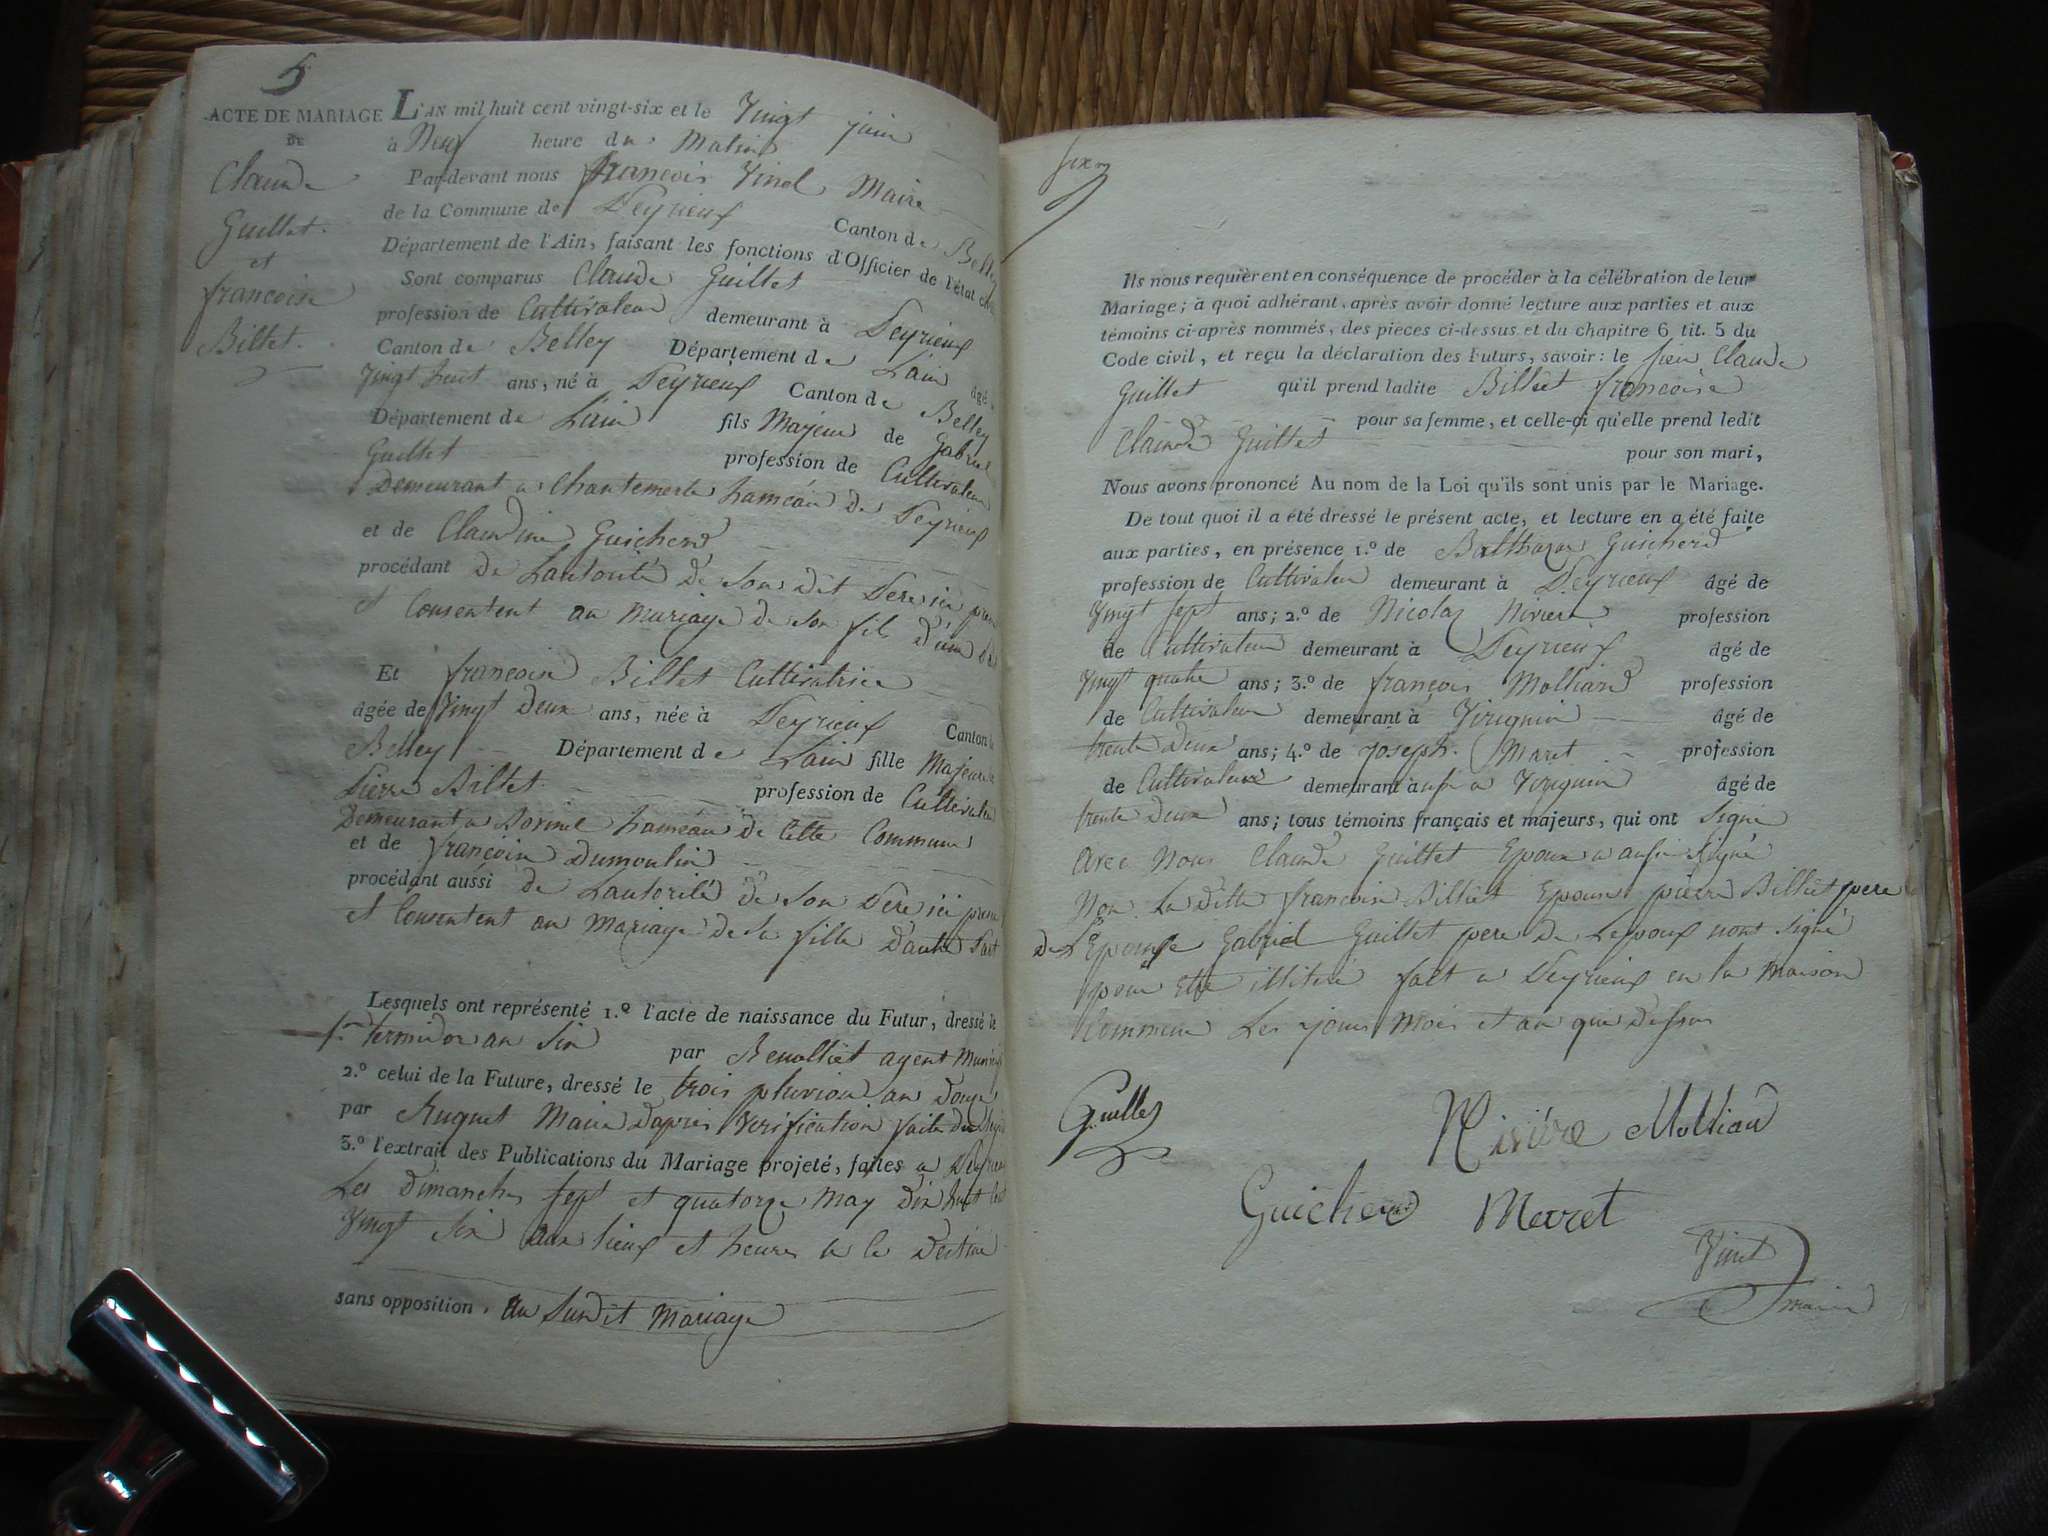 5
ACTE DE MARIAGE
DE
Claude
Guillet
et
francoise
Billet
L'AN mil huit cent vingt-six et le Vingt juin
à Neuf heure du Matin
Par-devant nous françois Vinet Maire
de la Commune de Peyrieux Canton de Belley
Département de l'Ain, faisant les fonctions d'Officier de l'état civil
Sont comparus Claude Guillet
profession de Cultivateur demeurant à Peyrieux
Canton de Belley Département de Lain âgé de
Vingt huit ans, né à Peyrieux Canton de Belley
Département de Lain fils Majeur de Gabriel
Guillet profession de Cultivateur
Demeurant a Chantemerle hameau de Peyrieux
et de Claudine Guicherd
procédant de Lautorité de Son dit Pere ici
et Consentent au mariage de Son fils d'une
Et francoise Billet Cultivatrice
âgée de Vingt Deux ans, née à Peyrieux Canton de
Belley Département de Lain fille Majeure
Pierre Billet profession de Cultivateur
Demeurant a hameau de Cette Commune
et de françoise Dumoulin
procédant aussi de Lautorité de Son Pere ici
et Consentent au Mariage de Sa fille D'autre Part
Lesquels ont représenté 1.º l'acte de naissance du Futur, dressé le
1er termidor an Six par agent
2.º celui de la Future, dressé le trois pluviose an Douze
par Maire Dapres Verification faite
3.º l'extrait des Publications du Mariage projeté, faites a Peyrieux
Les dimanches Sept et quatorze May Dix huit Cent
Vingt Six aux lieux et heures a ce Destiné
sans opposition, au Susdit Mariage
Six
Ils nous requièrent en conséquence de procéder à la célébration de leur
Mariage; à quoi adhérant, après avoir donné lecture aux parties et aux
témoins ci-après nommés, des pieces ci-dessus et du chapitre 6, tit. 5 du
Code civil, et reçu la déclaration des Futurs, savoir: le Claude
Guillet qu'il prend ladite Billiet francoise
pour sa femme, et celle-ci qu'elle prend ledit
Claude Guillet pour son mari,
Nous avons prononcé Au nom de la Loi qu'ils sont unis par le Mariage.
De tout quoi il a été dressé le présent acte, et lecture en a été faite
aux parties, en présence 1.º de Balthazar Guicherd
profession de Cultivateur demeurant à Peyrieux âgé de
Vingt Sept ans; 2.º de Nicolas Riviere profession
de Cultivateur demeurant à Peyrieux âgé de
Vingt quatre ans; 3.º de françois Molliard profession
de Cultivateur demeurant à Virignin âgé de
trente Deux ans; 4.º de Joseph Maret profession
de Cultivateur demeurant à aussi a Virignin âgé de
trente Deux ans; tous témoins français et majeurs, qui ont Signé
Avec Nous Claude Guillet Epoux a aussi Signé
Non La Ditte francoise Billiet Epouse pierre Billiet pere
de L Epouse Gabriel Guillet pere de Lepoux nont Signé
pour Etre illitéré fait a Peyrieux en la Maison
Commune Les jours Mois et an que Dessus
Guillet
Rivière Molliard
Guicherd Merret
Vinet
maire